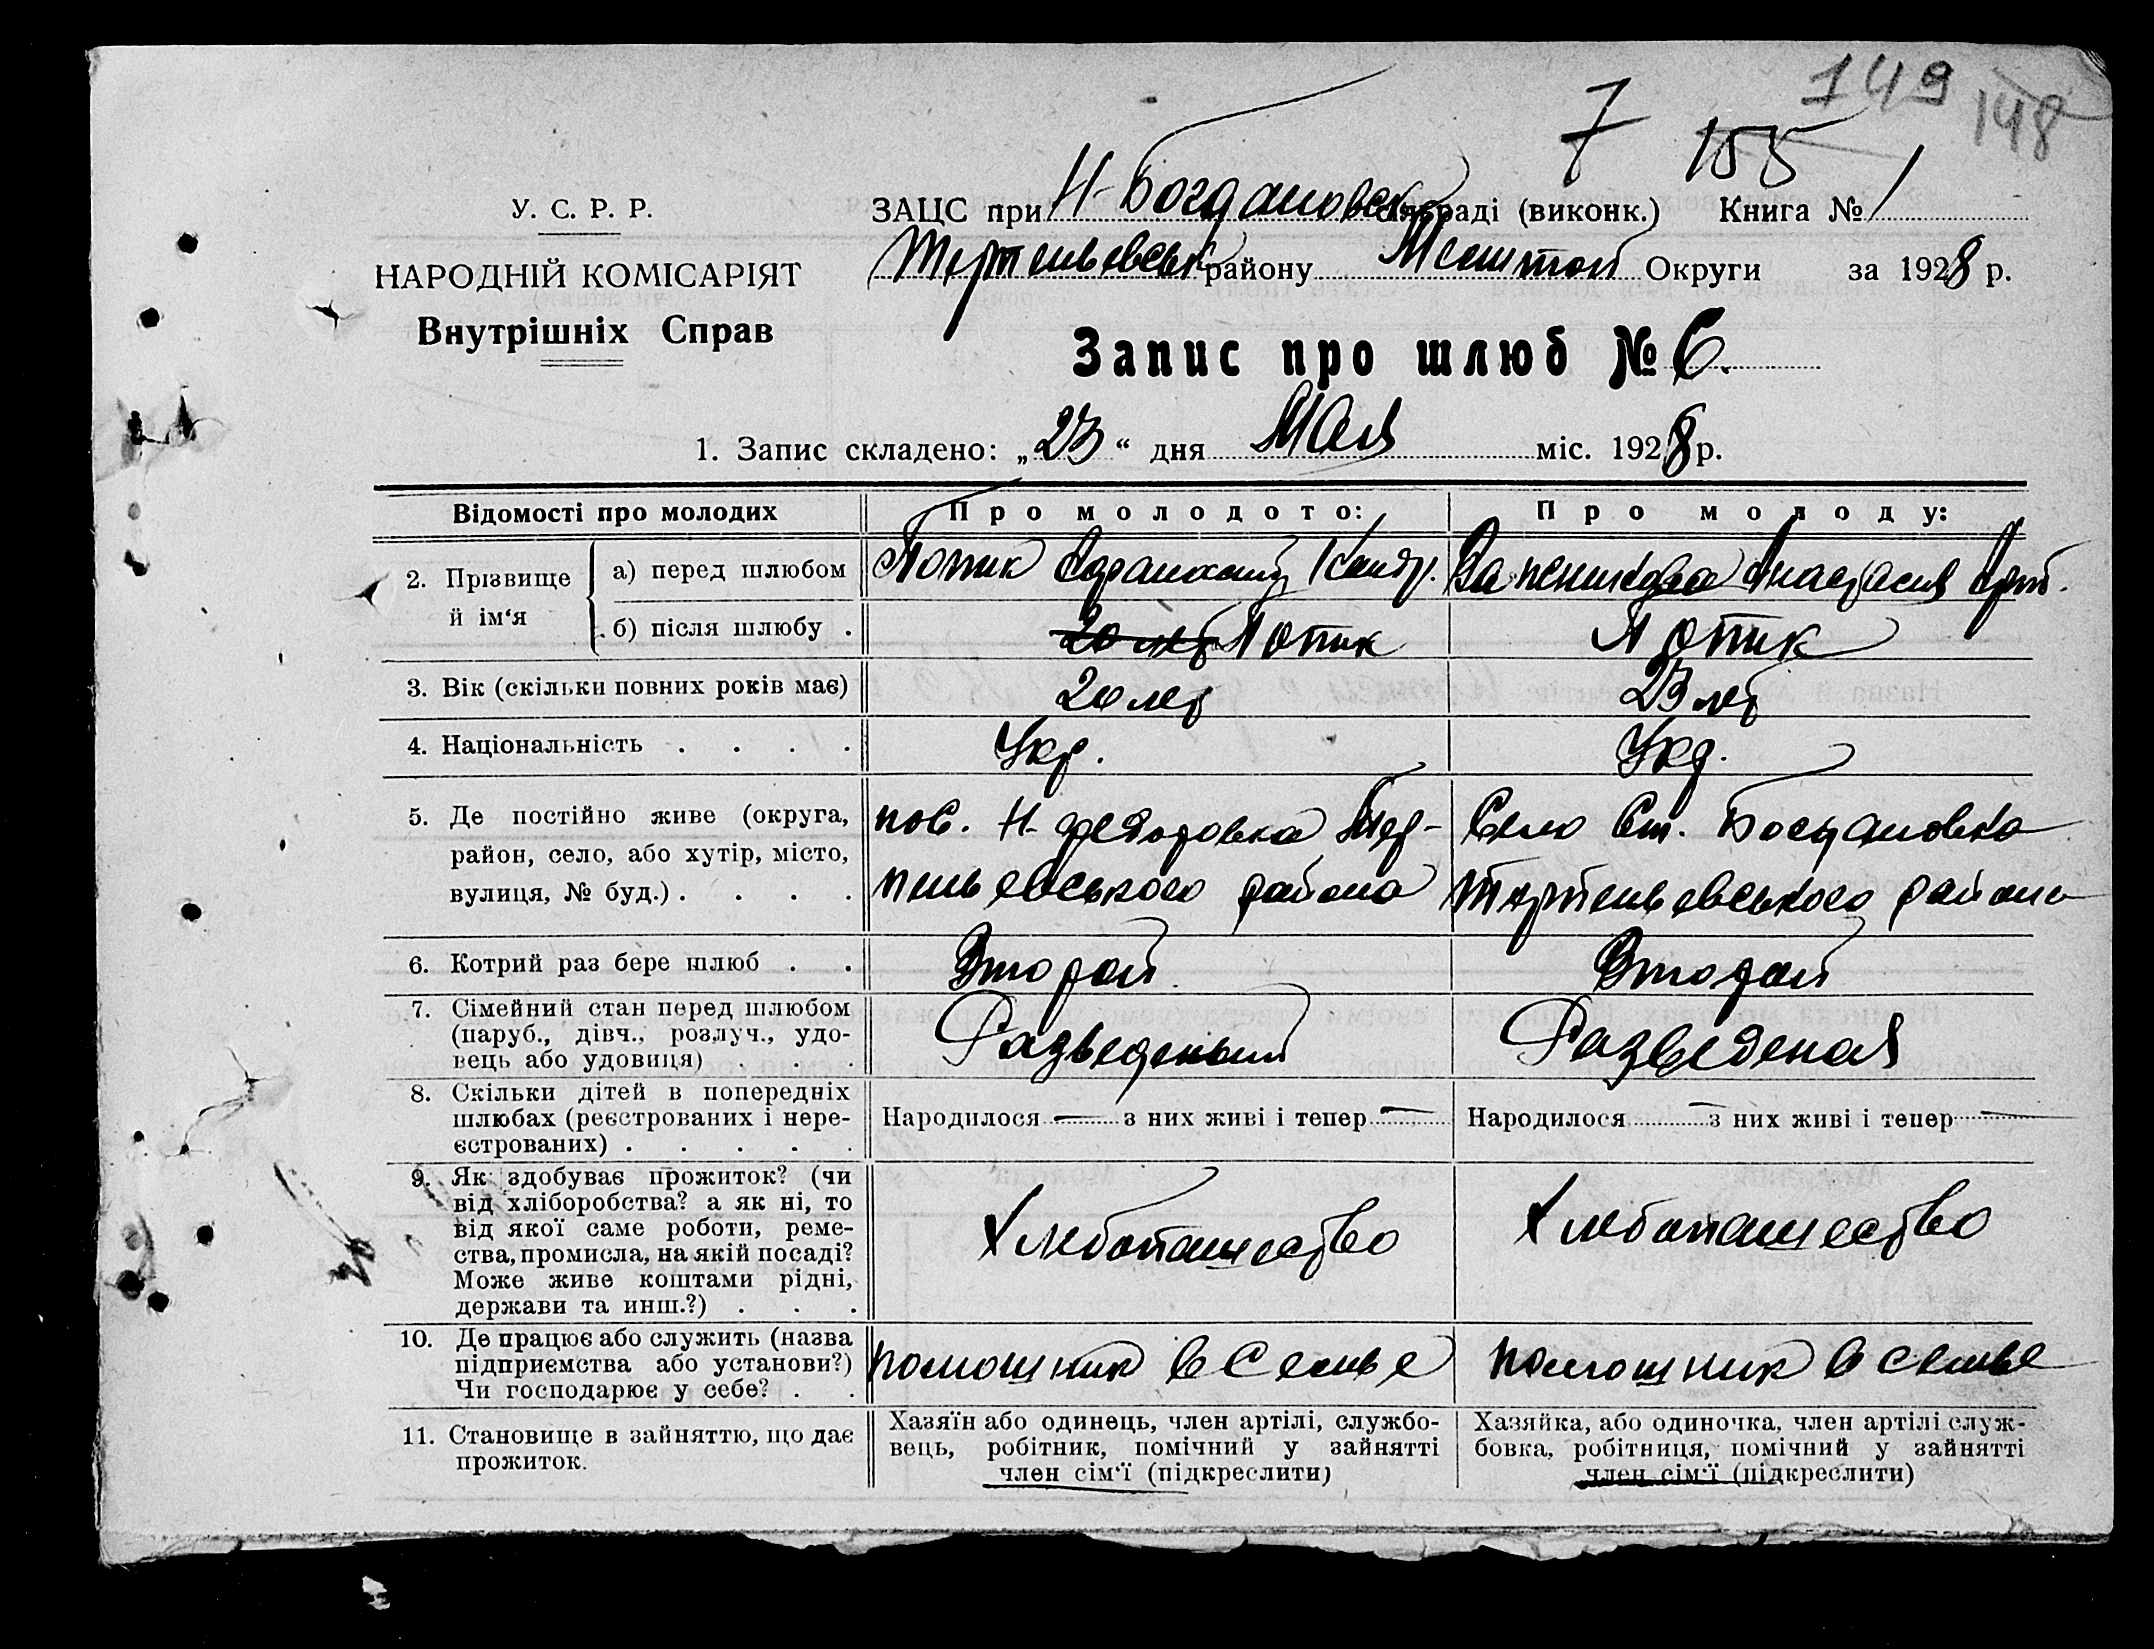 149
148
7 155
У. С. Р. Р.
ЗАЦС при Н-Богдановск. сільраді (виконк.) Книга № 1
Терпеньевськ району Мелитоп Округи за 1928 р.
НАРОДНІЙ КОМІСАРІЯТ
Внутрішніх Справ
Запис про шлюб № 6.
1. Запис складено: „23“ дня Мая міс. 1928 р.
Відомості про молодих
Про молодого:
Про молоду:
2. Прізвище й імʻя
а) перед шлюбом
Попик
Анастасия
б) після шлюбу .
20 лет Попик
Попик
3. Вік (скільки повних років має)
20 лет
23 лет
4. Національність . . . .
Укр.
Укр.
5. Де постійно живе (округа,
район, село, або хутір, місто,
вулиця, № буд.) . . . .
пос. Н-Федоровка Тер-
пеньевського района
Село Ст. Богдановка
Терпеньевського района
6. Котрий раз бере шлюб . .
Второй
Второй
7. Сімейний стан перед шлюбом
(паруб., дівч., розлуч., удо-
вець або удовиця) . . .
Разведеный
Разведеная
8. Скільки дітей в попередніх
шлюбах (реєстрованих і нере-
єстрованих) . . . . .
Народилося — з них живі і тепер —
Народилося — з них живі і тепер —
9. Як здобуває прожиток? (чи
від хліборобства? а як ні, то
від якої саме роботи, реме-
ства, промисла, на якій посаді?
Може живе коштами рідні,
держави та инш.?) . . .
Хлебопашество
Хлебопашество
10. Де працює або служить (назва
підприємства або установи?)
Чи господарює у себе? . .
помошник в семье
помошник в семье
11. Становище в зайняттю, що дає
прожиток.
Хазяїн або одинець, член артілі, службо-
вець, робітник, помічний у зайнятті
член сімʻї (підкреслити)
Хазяйка, або одиночка, член артілі служ-
бовка, робітниця, помічний у зайнятті
член сімʻї (підкреслити)